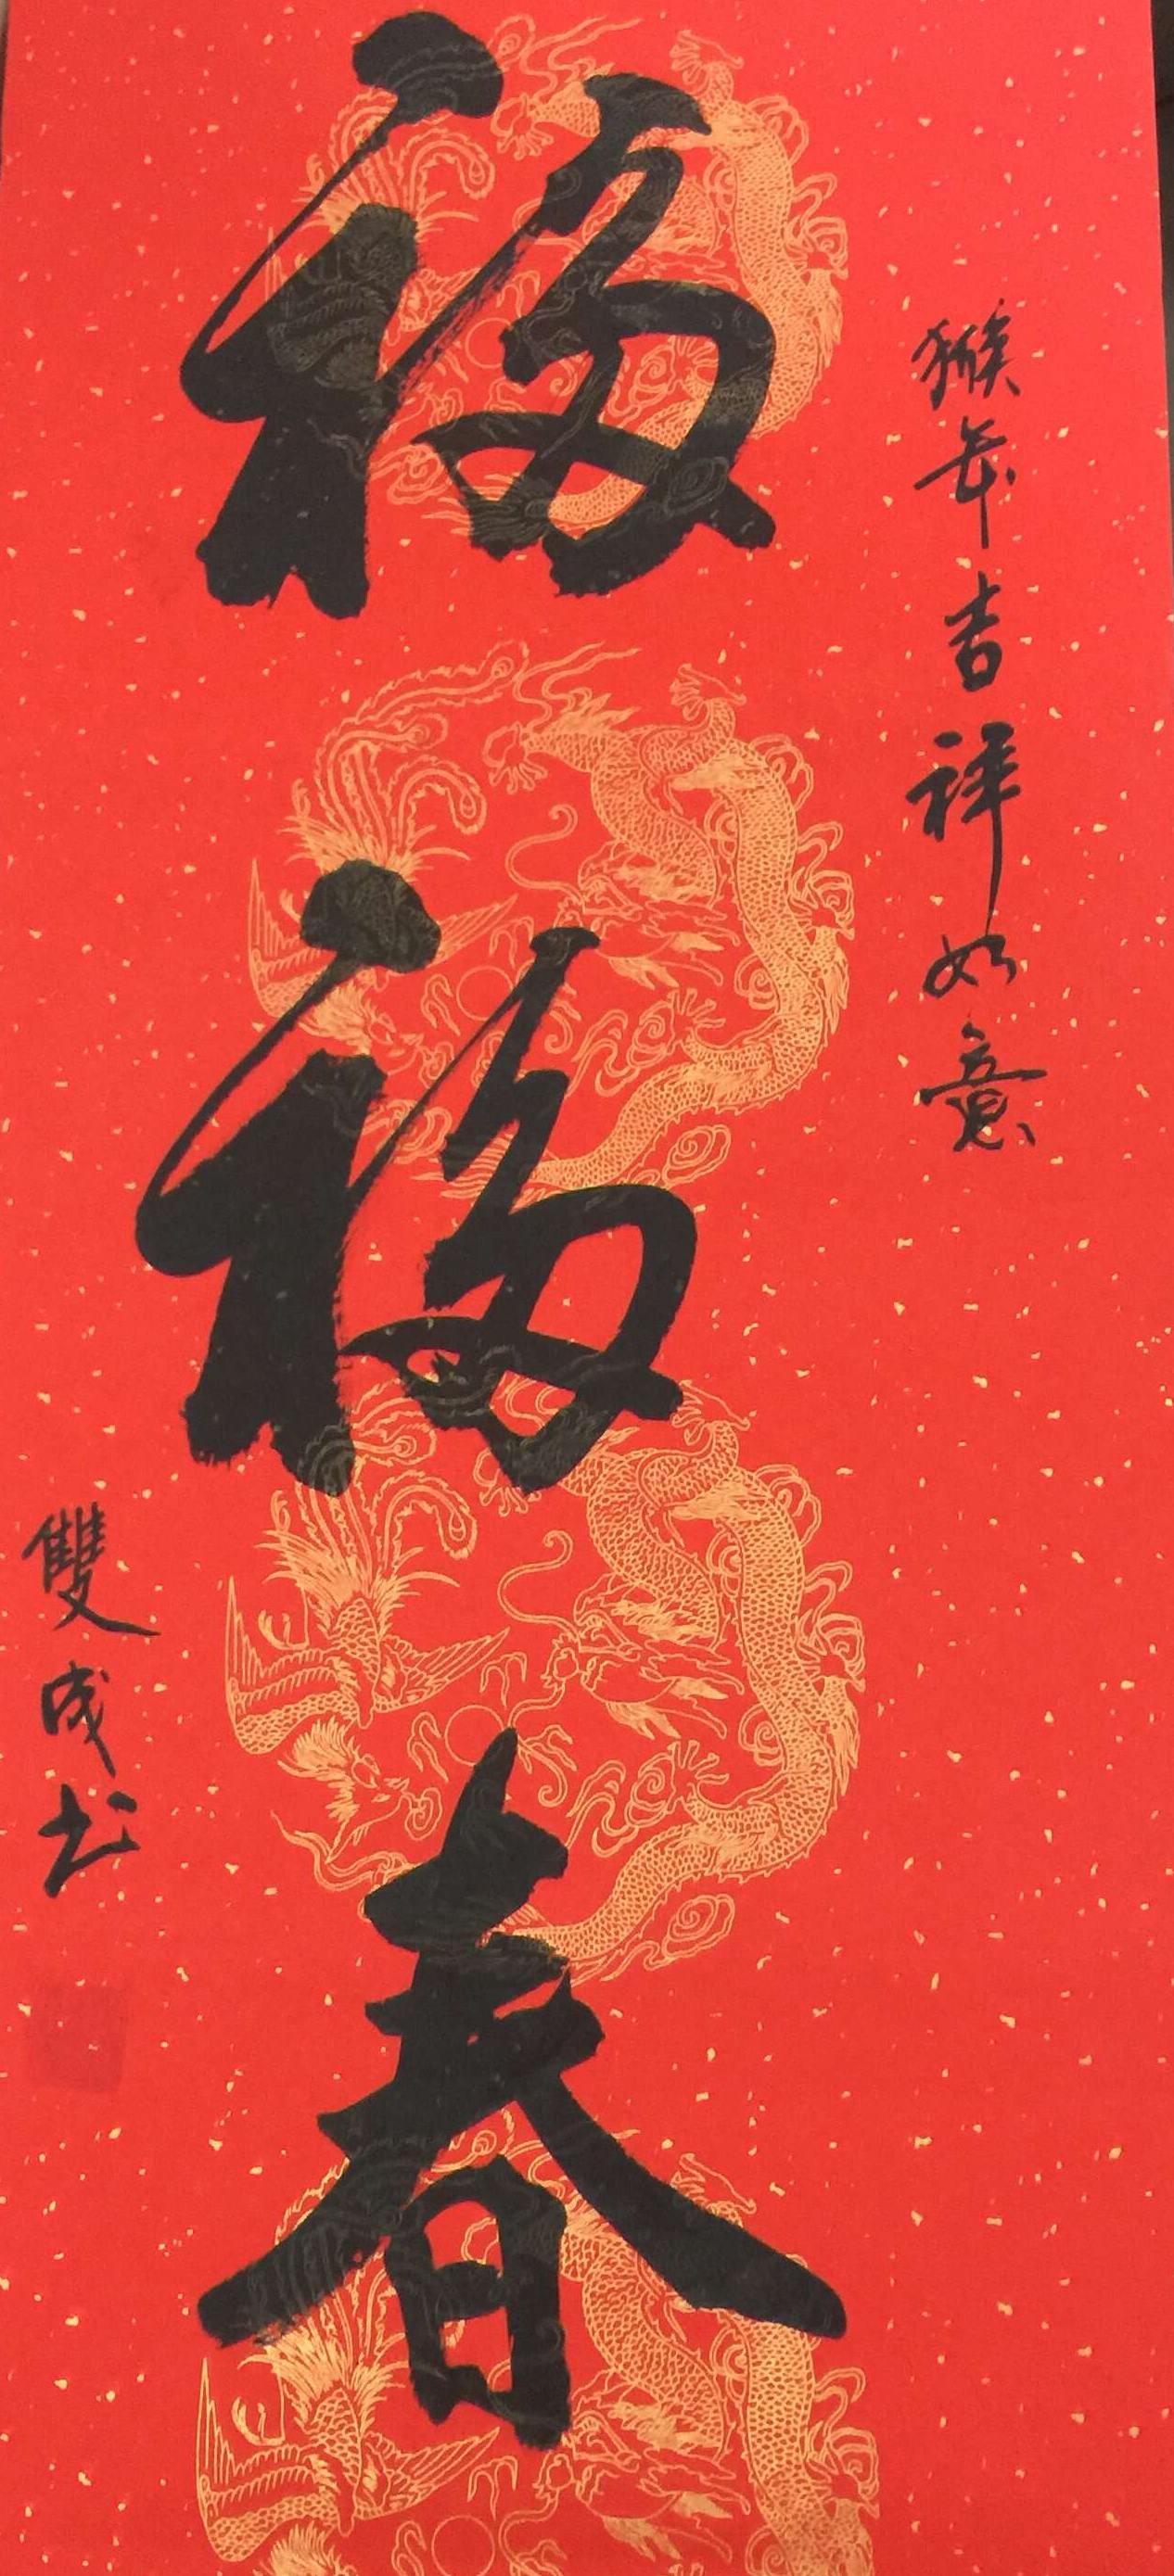 猴年吉祥如意
福福春
雙成书